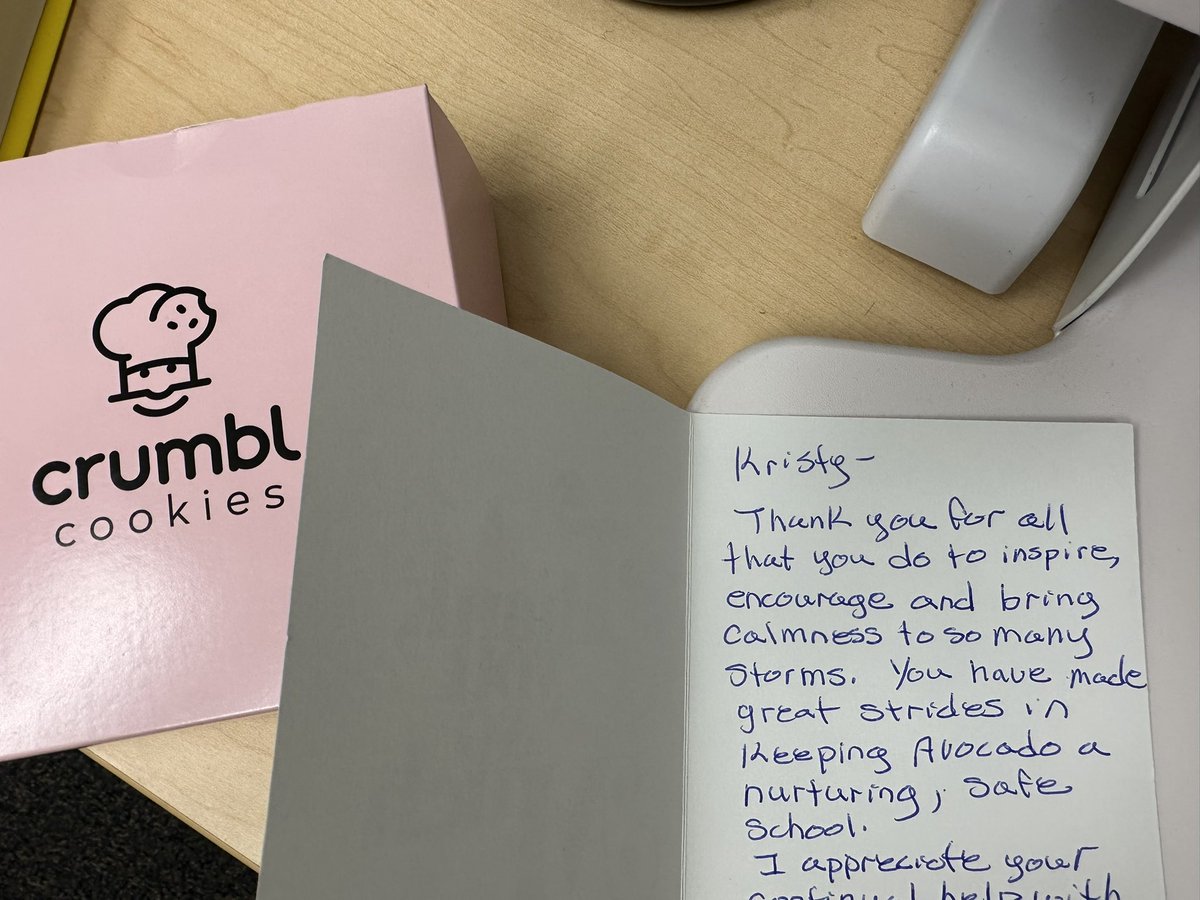 crumbl
cookies
Kristy-
Thank you for all
that you do to inspire,
encourage and bring
calmness to so many
storms. You have made
great strides in
keeping Avocado a
nurturing, safe
school.
I appreciate your
continual help with